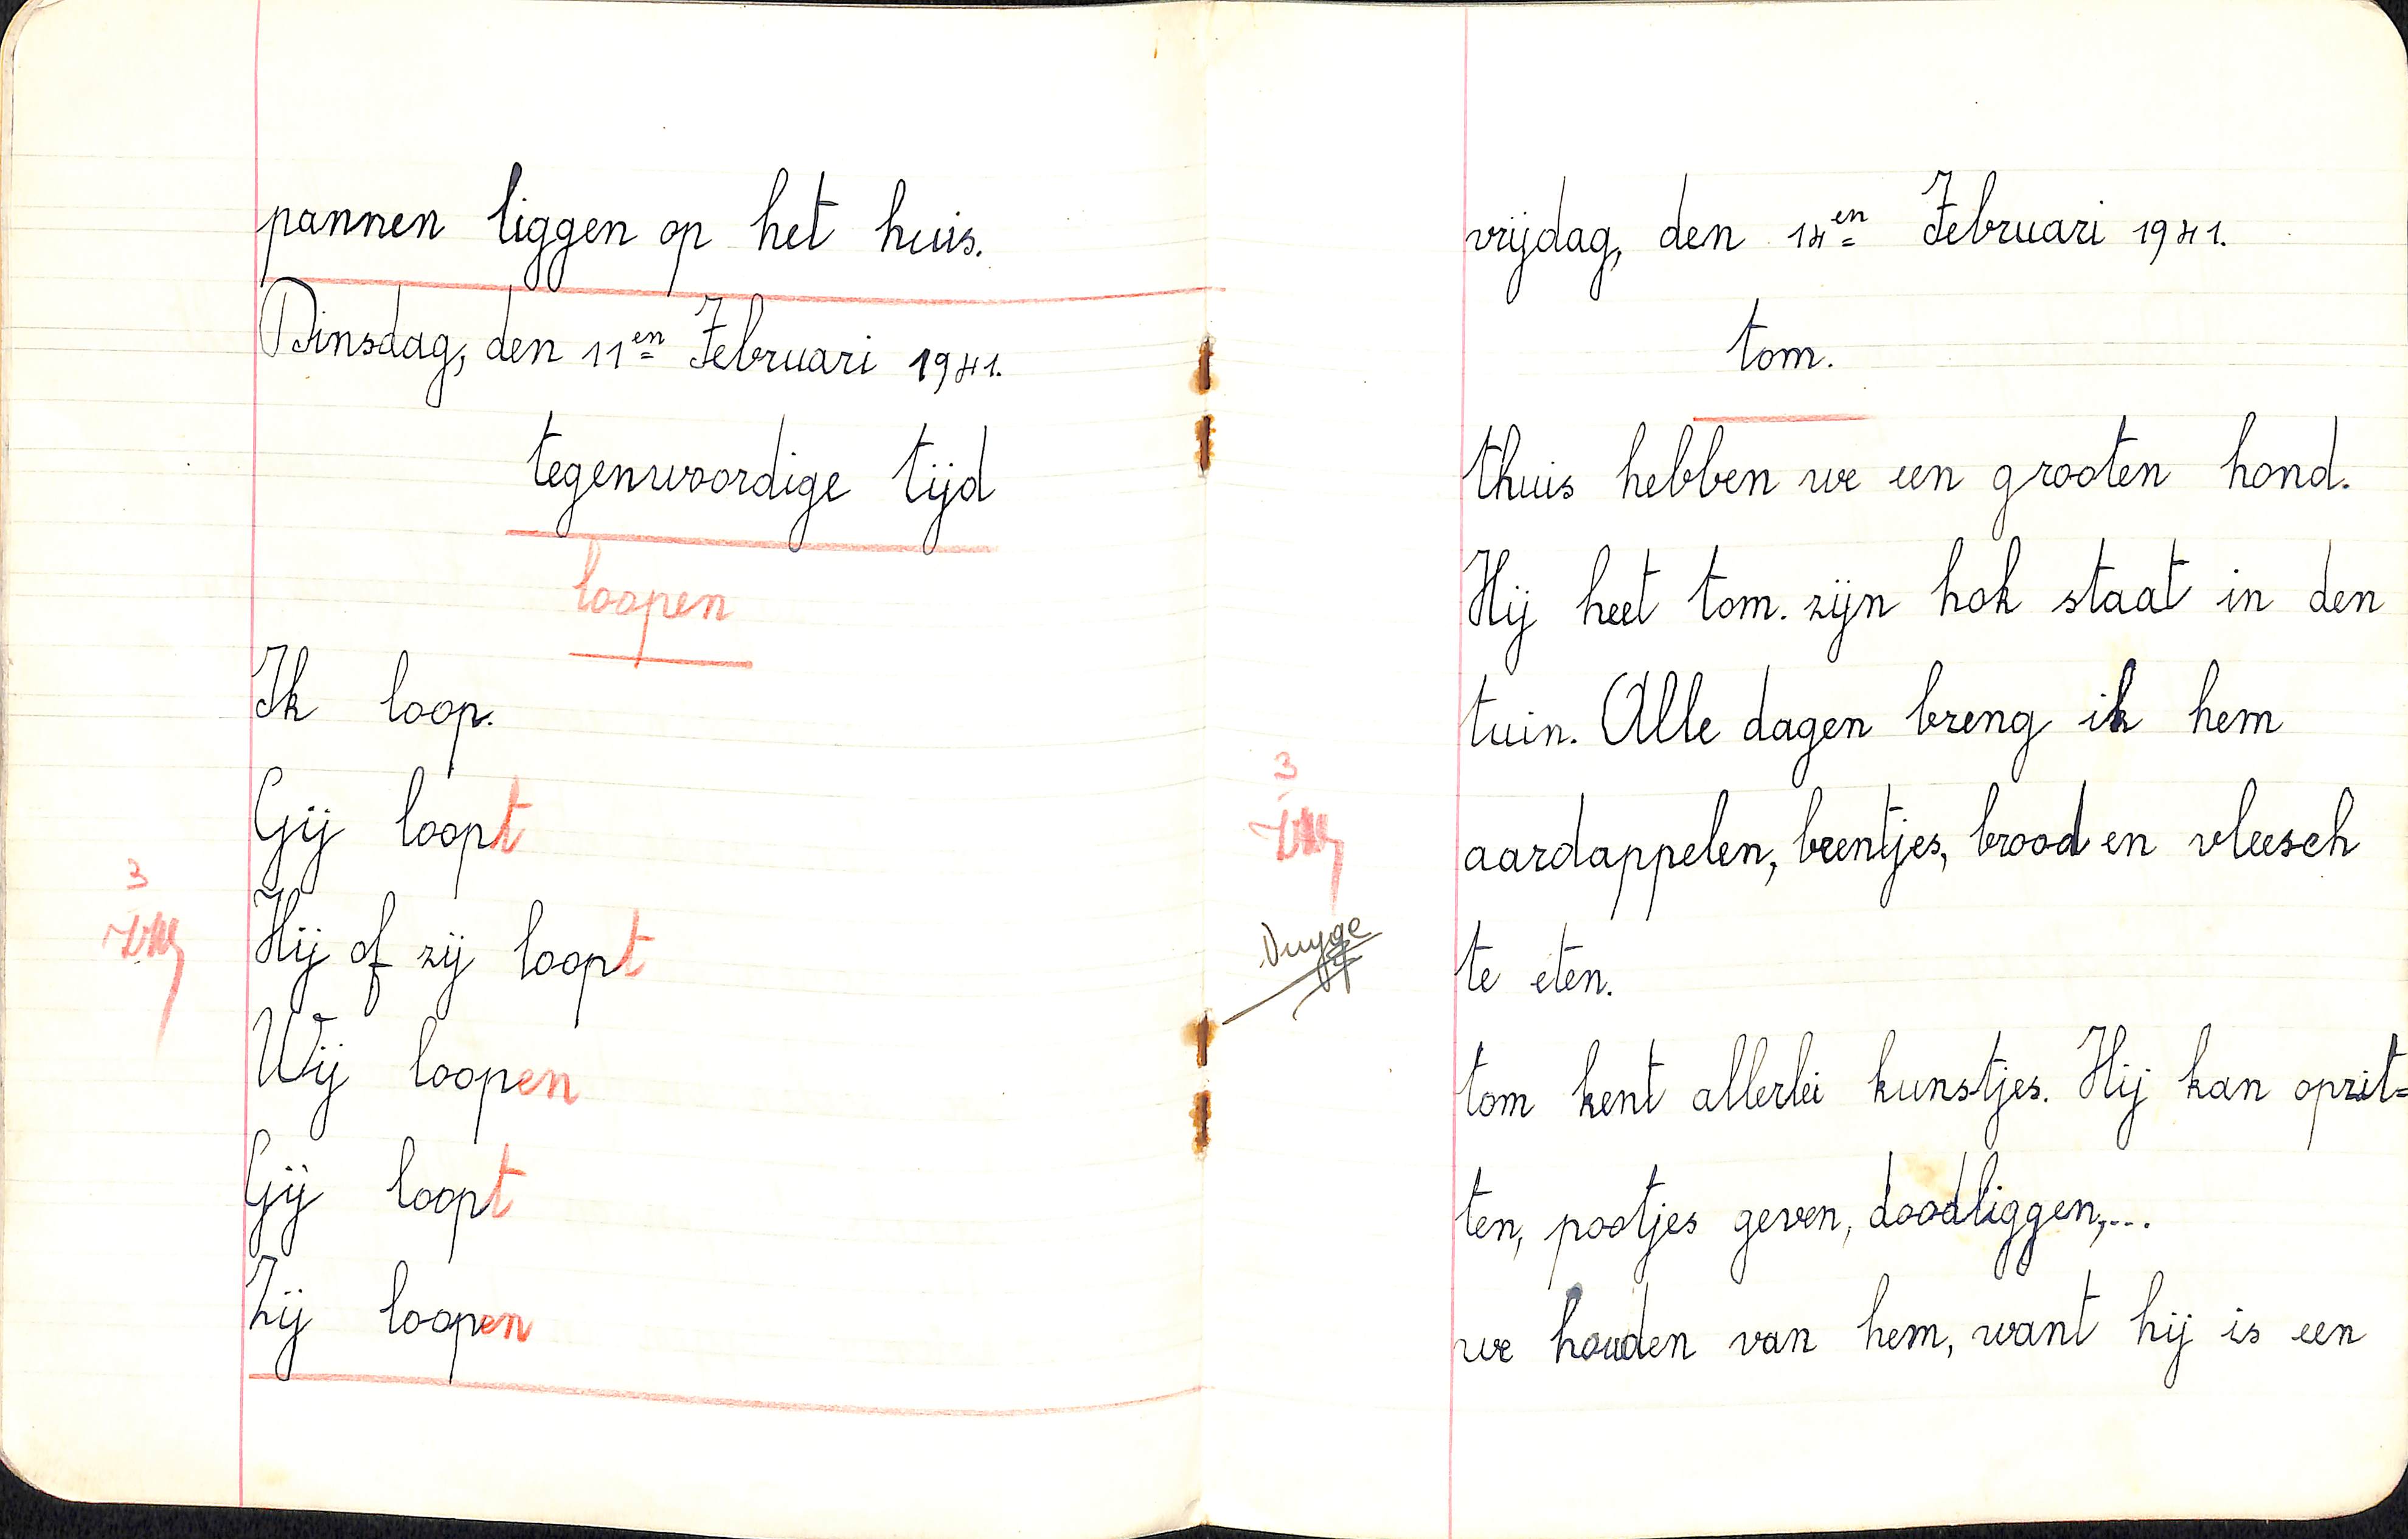 pannen liggen op het huis.
Dinsdag, den 11en Februari 1941.
tegenwoordige tijd
loopen
Ik loop.
Gij loopt
3
Hij of zij loopt
Wij loopen
Gij loopt
Zij loopen
vrijdag, den 14en Februari 1941.
tom.
thuis hebben we een grooten hond.
Hij heet tom. zijn hok staat in den
tuin. Alle dagen breng ik hem
3
aardappelen, beentjes, brood en vleesch
te eten.
tom kent allerlei kunstjes. Hij kan opzit=
ten, pootjes geven, doodliggen,...
we houden van hem, want hij is een